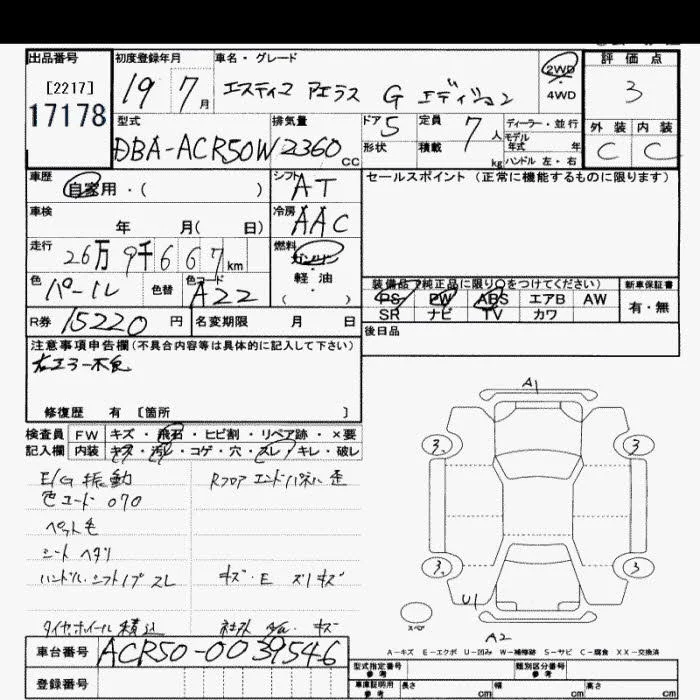 出品番号 初度登録年月 車名・グレード 評価点
[2217]
17178
19 7月
エスティマ アエラス G エディション
2WD
4WD
3
型式 排気量 ドア 定員 ディーラー・並行 外装 内装
DBA-ACR50W 2360 CC 5 7人 モデル年式 年 C C
形状 積載 kg ハンドル 左・右
車歴 自家用・( )
シフト AT
セールスポイント (正常に機能するものに限ります)
車検 年 月( 日)
冷房 AAC
走行 26万9千667km
燃料 ガソリン・軽油 ( )
色 パール 色替 色コード A22
装備品(純正品に限り〇をつけてください) 新車保証書
PS PW ABS エアB AW 有・無
SR ナビ TV カワ
R券 15220円 名変期限 月 日
後日品
注意事項申告欄(不具合内容等は具体的に記入して下さい)
右ミラー不良
修復歴 有 [箇所 ]
検査員 FW キズ・飛石・ヒビ割・リペア跡・×要
記入欄 内装 キズ・汚レ・コゲ・穴・スレ・キレ・破レ
E/G 振動 Rフロア エンドパネル 歪
色コード 070
ペット毛
シート ヘタリ
ハンドル・シフトノブ スレ キズ・E ズリキズ
タイヤホイール積込 社外 キズ
A1
3 3
3 3
U1
スペア
A2
A-キズ E-エクボ U-凹み W-補修跡 S-サビ C-腐食 XX-交換済
車台番号 ACR50-0039546
登録番号
型式指定番号 参考 類別区分番号 参考
車庫証明用 参考 長さ cm 幅 cm 高さ cm